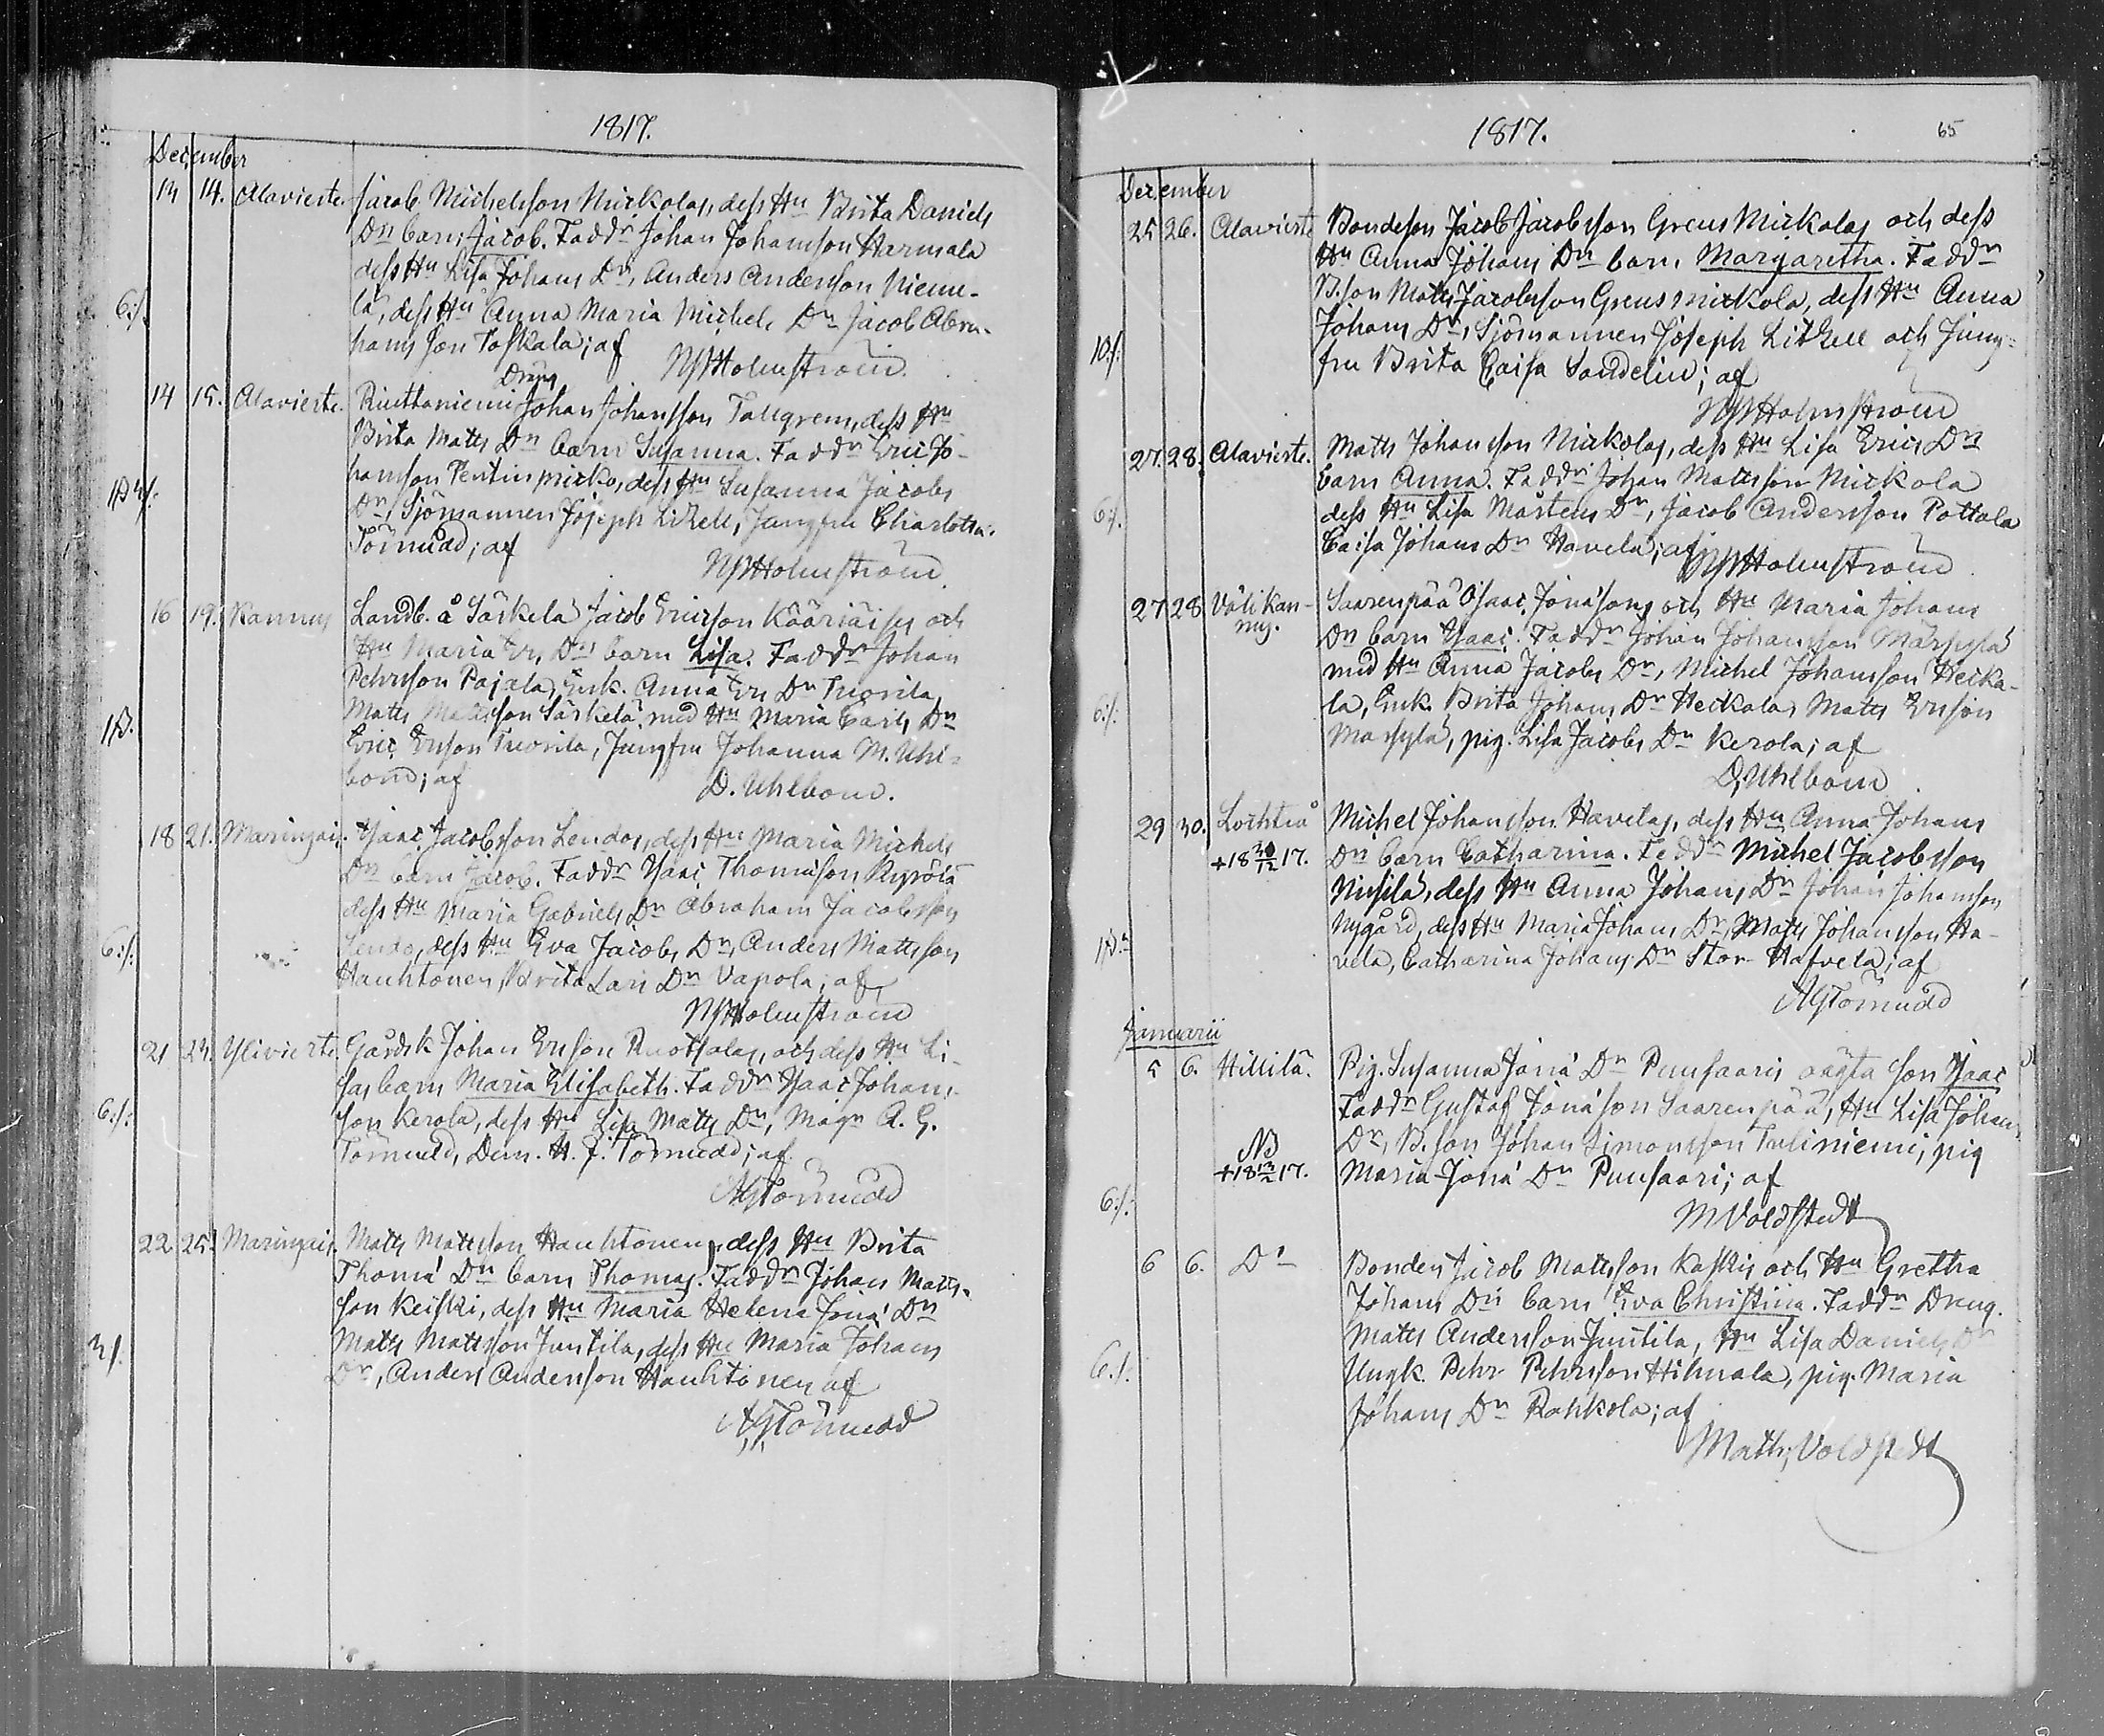 1817.
December
13 14. Alavieste. Jacob Michelsson Nickolas, dess Hu Brita Daniels
Dr barn Jacob. Faddr Johan Johansson Harmala
dess Hu Lisa Johans Dr, Anders Andersson Nieme-
6:/. lä, dess Hu Anna Maria Michels Dr Jacob Abra-
hams son Toskala; af NHolmström
Dräng
14 15. Alavieste. Riuttaniemi Johan Johansson Tallgrens, dess Hu
Brita Matts Dr barn Susanna. Faddr Eric Jo-
hansson Pentin micko, dess Hu Susanna Jacobs
Dr, Sjömannen Joseph Litzell, Jungfru Charlotta
Törnudd; af
NHolmström
16 19. Kannus Landb. å Säskelä Jacob Ericsson Kääriäises och
Hu Maria Er. Dr barn Lisa. Faddr Johan
Pehrsson Pajala, Enk. Anna Ers Dr Tuorila,
Matts Mattsson Säskelä med Hu Maria Carls Dr
Eric Ersson Tuorila, Jungfru Johanna M. Uhl-
bom; af D. Uhlbom.
18 21. Maringais. Isaac Jacobsson Lendos, dess Hu Maria Michels
Dr barn Jacob. Faddr Isaac Thomasson Rypölä
dess Hu Maria Gabriels Dr Abraham Jacobsson
6:/: Lendo, dess Hu Eva Jacobs Dr, Anders Mattsson
Hauhtonen, Brita Lars Dr Vapola; af
NHolmström
21 23. Ylivieste. Gårdsk Johan Ersson Ruotsalas, och dess Hu Li-
sas barn Maria Elisabeth. Faddr Isaac Johans-
6:/: son Kerola, dess Hu Lisa Matts Dr, Magr A. G.
Törnudd, Dem. H. J. Törnudd; af
AGTörnudd
22 25. Maringais. Matts Mattsson Hauhtonens, dess Hu Brita
Thomæ Dr barn Thomas. Faddr Johan Matts-
son Keiski, dess Hu Maria Helena Jonæ Dr
3/. Matts Mattsson Juntila, dess Hu Maria Johans
Dr, Anders Andersson Hauhtonen af
AGTörnudd
1817. 65
December
25 26. Alavieste Bondeson Jacob Jacobsson Greus Nickolas och dess
Hu Anna Johans Dr barn, Margaretha. Faddr
B.son Matts Jacobsson Greus nickola, dess Hu Anna
10/: Johans Dr, Sjömannen Joseph Litzell och Jung-
fru Brita Caisa Sandelin; af
NHolmström
27. 28. Alavieste. Matts Johansson Nickolas, dess Hu Lisa Erics Dr
barn Anna. Faddr Johan Mattsson Nickola
6:/. dess Hu Lisa Mårtens Dr, Jacob Andersson Pottala
Caisa Johans Dr Havela; af NHolmström
27 28 Välikan- Saarenpää Isaac Jonæsons och Hu Maria Johans
nus. Dr barn Isaac. Faddr Johan Johansson Märsylä
med Hu Anna Jacobs Dr, Michel Johansson Heika-
6:/: la, Enk. Brita Johans Dr Heikola, Matts Ersson
Marsylä, pig. Lisa Jacobs Dr Kerola; af
D. Uhlbom
29 30. Lochteå Michel Johansson Havelas, dess Hu Anna Johans
+18 30/12 17. Dr barn Catharina. Faddr Michel Jacobsson
Nissilä, dess Hu Anna Johans Dr Johan Johansson
Nygård, dess Hu Maria Johans Dr, Matts Johansson Ha-
vela, Catharina Johans Dr Stor Hafvela; af
AGTörnudd
Januarii
5 6. Hillilä. Pig. Susanna Jonæ Dr Puusaaris oägta son Isaac
Faddr Gustaf Jonæson Saarenpää, Hu Lisa Johans
NB Dr, B.son Johan Simonsson Tuliniemi, pig
Maria Jonæ Dr Puusaari; af
6:/. M Voldstedt
6 6. Do Bonden Jacob Mattsson Kaskis och Hu Gretha
Johans Dr barn Eva Christina. Faddr Dreng.
Matts Andersson Juutila, Hu Lisa Daniels Dr
6./. Ungk. Pehr Pehrsson Hihnala, pig. Maria
Johans Dr Rahkola; af
Matths Voldstedt